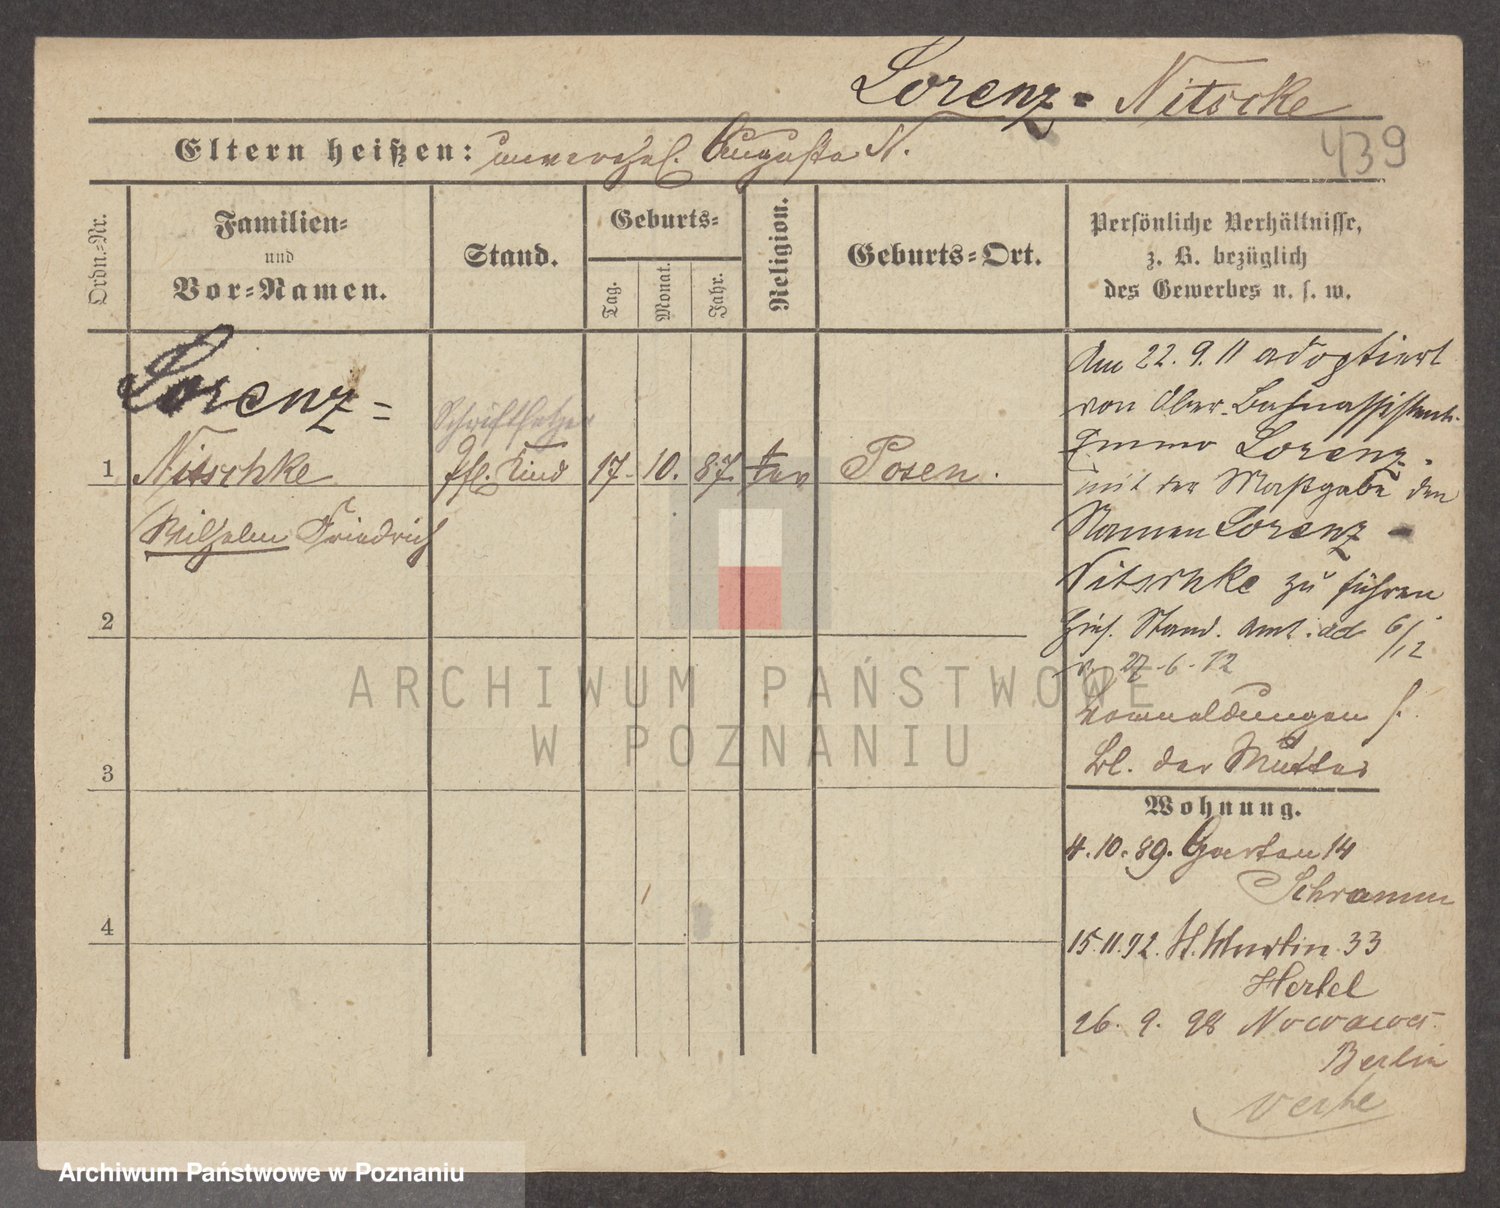 Lorenz = Nitscke
439
Eltern heißen: unverehel. Auguste N.
Ordn.=Nr.
Familien=
und
Vor=Namen.
Stand.
Geburts=
Tag.
Monat.
Jahr.
Religion.
Geburts=Ort.
Persönliche Verhältnisse,
z. B. bezüglich
des Gewerbes u. s. w.
Lorenz =
Schriftsetzer
1 Nitschke Pfl. Kind 17. 10. 87. ev Posen.
Wilhelm Friedrich
2
3
4
Am 22. 9. 11 adoptiert
von Ober-Bahnassistent
Emmo Lorenz
mit der Maßgabe den
Namen Lorenz =
Nitschke zu führen
Stand. Amt. 6/12
v. 27.6.12
Anmeldungen s.
Bl. der Mutter
Wohnung.
4.10.89. Garten 14
Schramm
15.11.92. St. Martin 33
Hertel
26. 9. 98 Nowawes
Berlin
verte
ARCHIWUM PAŃSTWOWE
W POZNANIU
Archiwum Państwowe w Poznaniu